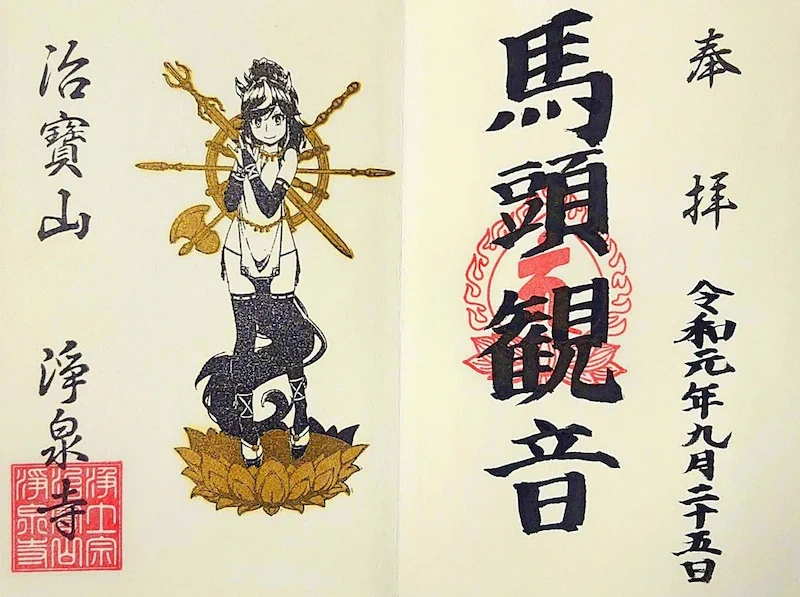 奉拝
令和元年九月二十五日
馬頭観音
治寶山
浄泉寺
浄土宗
治寳山
浄泉寺